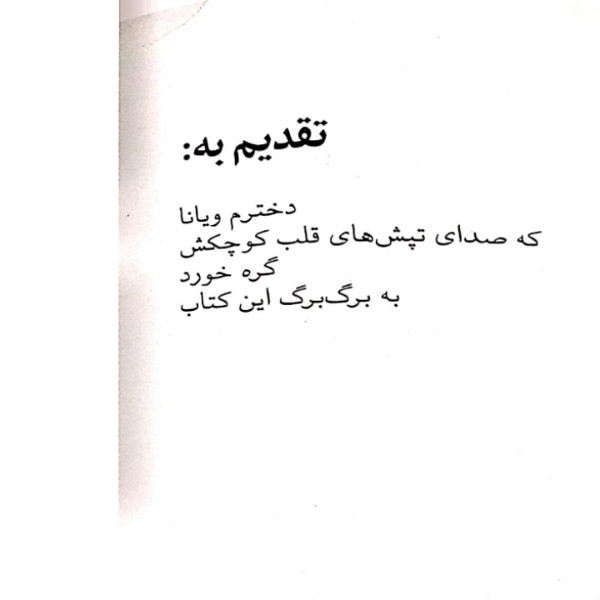 تقدیم به:
دخترم ویانا
که صدای تپش‌های قلب کوچکش
گره خورد
به برگ‌برگ این کتاب